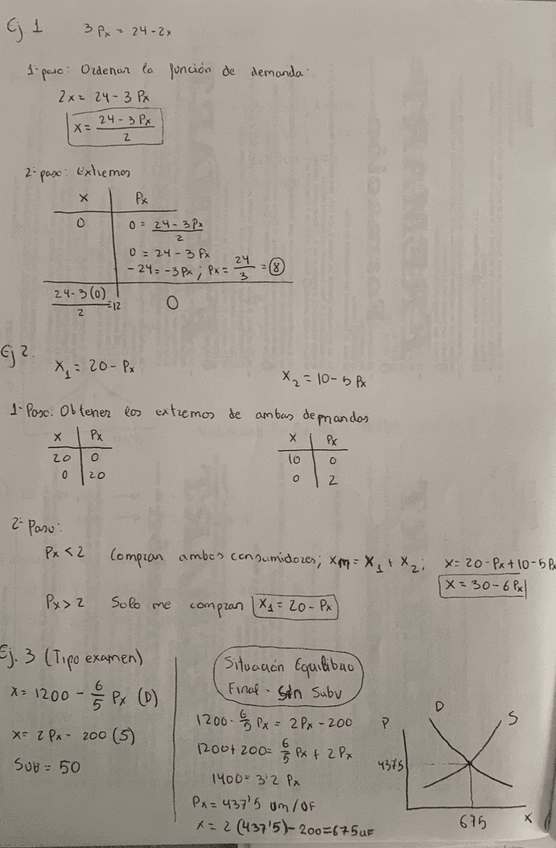 Ej 1 3 Px = 24-2x
1-paso: Ordenar la función de demanda:
2x = 24 - 3 Px
x = (24 - 3 Px)/2
2-paso: Extremos
x | Px
0 | 0 = (24 - 3Px)/2
0 = 24 - 3 Px
-24 = -3Px ; Px = 24/3 = 8
(24-3(0))/2 = 12 | 0
Ej 2.
X1 = 20 - Px X2 = 10 - 5 Px
1-Paso: Obtener los extremos de ambas demandas
X | Px X | Px
20 | 0 10 | 0
0 | 20 0 | 2
2- Paso:
Px < 2 Compran ambos consumidores; Xm = X1 + X2; X = 20 - Px + 10 - 5 Px
X = 30 - 6 Px
Px > 2 Solo me compran X1 = 20 - Px
Ej. 3 (Tipo examen)
X = 1200 - 6/5 Px (D)
X = 2 Px - 200 (S)
SUB = 50
Situación Equilibrio
Final - Sin Subv
1200 - 6/5 Px = 2Px - 200
1200 + 200 = 6/5 Px + 2 Px
1400 = 3'2 Px
Px = 437'5 um/UF
X = 2 (437'5) - 200 = 675 UF
P D S
437'5
675 X